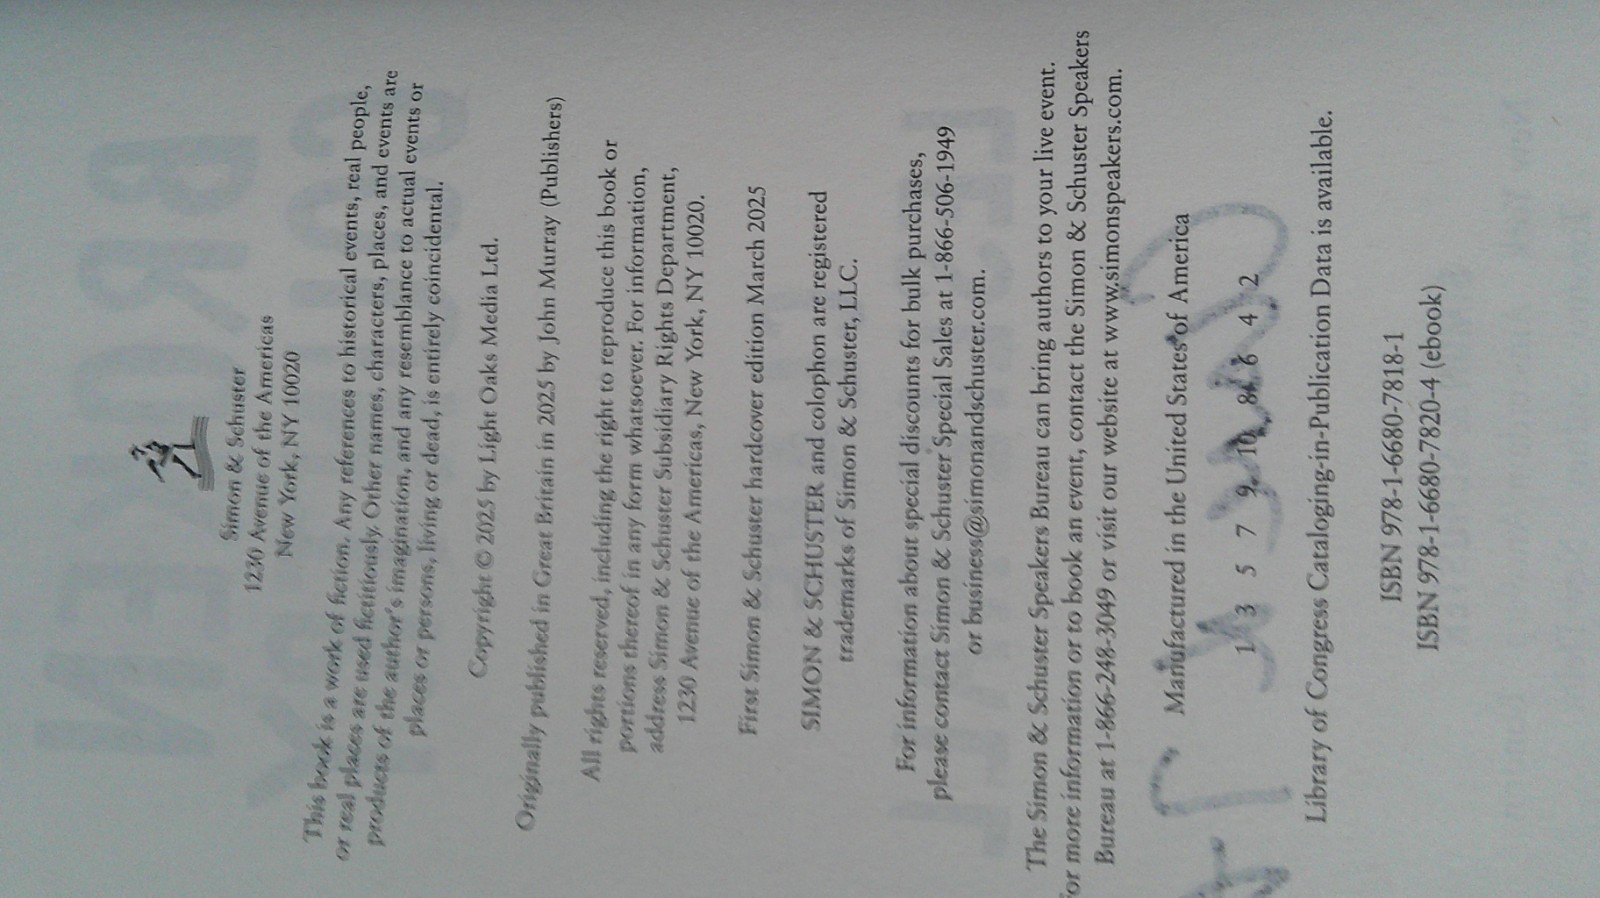 Simon & Schuster
1230 Avenue of the Americas
New York, NY 10020
This book is a work of fiction. Any references to historical events, real people,
or real places are used fictitiously. Other names, characters, places, and events are
products of the author's imagination, and any resemblance to actual events or
places or persons, living or dead, is entirely coincidental.
Copyright © 2025 by Light Oaks Media Ltd.
Originally published in Great Britain in 2025 by John Murray (Publishers)
All rights reserved, including the right to reproduce this book or
portions thereof in any form whatsoever. For information,
address Simon & Schuster Subsidiary Rights Department,
1230 Avenue of the Americas, New York, NY 10020.
First Simon & Schuster hardcover edition March 2025
SIMON & SCHUSTER and colophon are registered
trademarks of Simon & Schuster, LLC.
For information about special discounts for bulk purchases,
please contact Simon & Schuster Special Sales at 1-866-506-1949
or business@simonandschuster.com.
The Simon & Schuster Speakers Bureau can bring authors to your live event.
For more information or to book an event, contact the Simon & Schuster Speakers
Bureau at 1-866-248-3049 or visit our website at www.simonspeakers.com.
Manufactured in the United States of America
1 3 5 7 9 10 8 6 4 2
Library of Congress Cataloging-in-Publication Data is available.
ISBN 978-1-6680-7818-1
ISBN 978-1-6680-7820-4 (ebook)